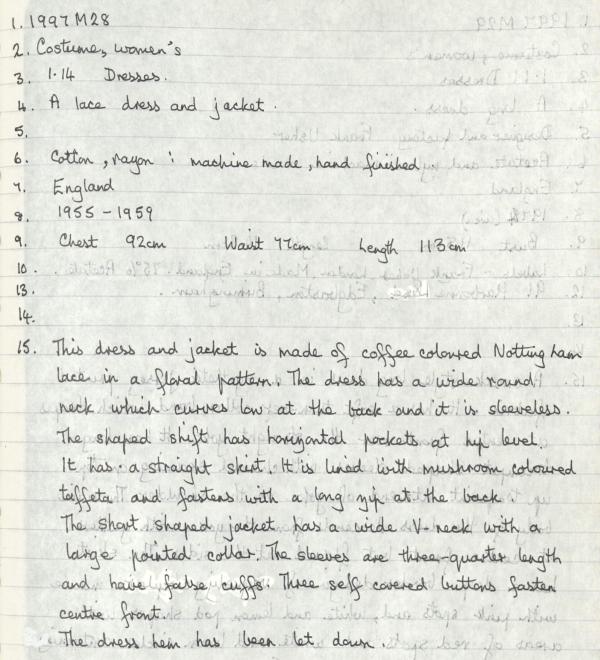 1. 1997 M28
2. Costume, women's
3. 1.14 Dresses.
4. A lace dress and jacket.
5.
6. Cotton, rayon: machine made, hand finished
7. England
8. 1955-1959
9. Chest 92cm Waist 77cm Length 113cm
10.
13.
14.
15. This dress and jacket is made of coffee coloured Nottingham
lace in a floral pattern. The dress has a wide round
neck which curves low at the back and it is sleeveless.
The shaped shift has horizontal pockets at hip level.
It has a straight skirt. It is lined with mushroom coloured
taffeta and fastens with a long zip at the back.
The short shaped jacket has a wide V-neck with a
large pointed collar. The sleeves are three-quarter length
and have false cuffs. Three self covered buttons fasten
centre front.
The dress hem has been let down.